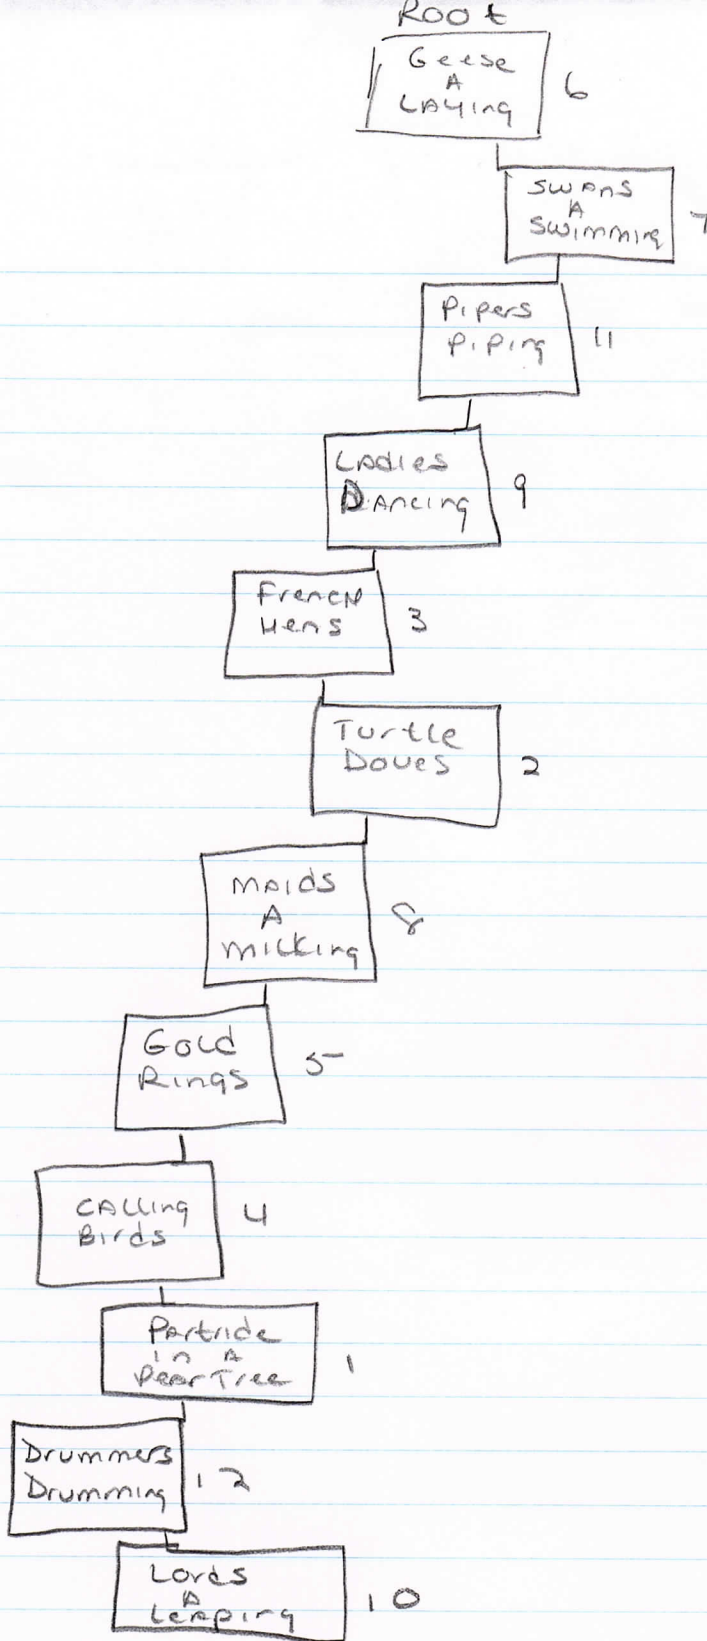 Root
Geese
A
Laying
6
Swans
A
Swimming
7
Pipers
Piping
11
Ladies
Dancing
9
French
Hens
3
Turtle
Doves
2
Maids
A
Milking
8
Gold
Rings
5
Calling
Birds
4
Partride
in a
Pear Tree
1
Drummers
Drumming
12
Lords
A
Leaping
10